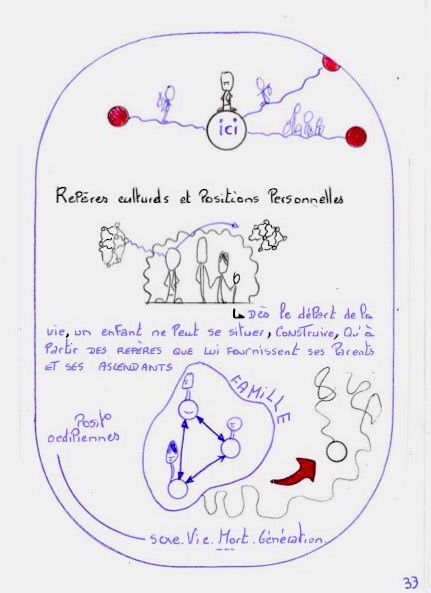 ici
Repères culturels et Positions Personnelles
Dès le départ de la
vie, un enfant ne Peut se situer, construire, Qu'à
Partir DES REPÈRES QUE LUI FOURNISSENT SES PARENTS
ET SES ASCENDANTS
FAMILLE
Posit°
oedipiennes
sexe. Vie. Mort. Génération.
33